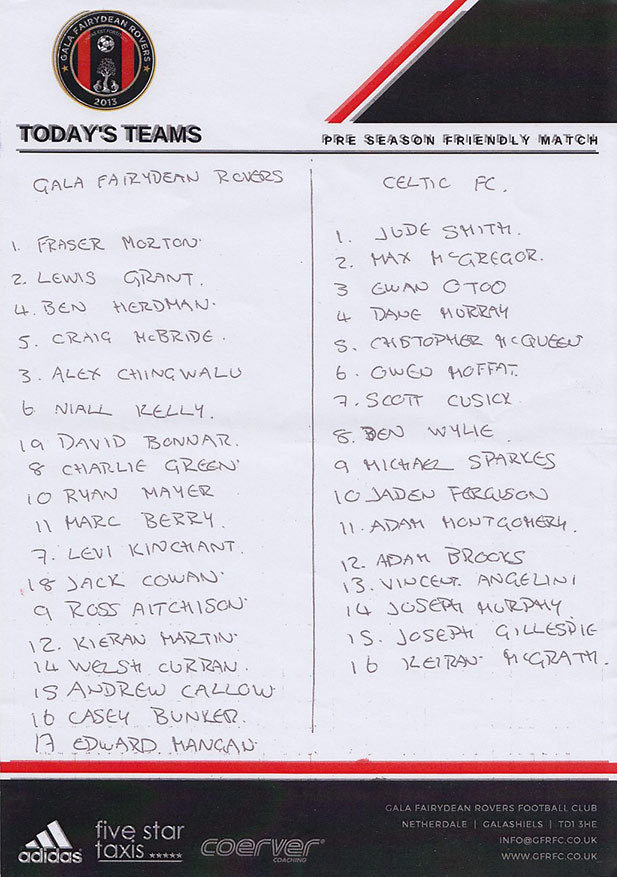 GALA FAIRYDEAN ROVERS
2013
TODAY'S TEAMS
PRE SEASON FRIENDLY MATCH
GALA FAIRYDEAN ROVERS
1. FRASER MORTON
2. LEWIS GRANT.
4. BEN HERDMAN.
5. CRAIG McBRIDE.
3. ALEX CHINGWALU
6 NIALL KELLY.
19 DAVID BONNAR.
8 CHARLIE GREEN
10 RYAN MAYER
11 MARC BERRY.
7. LEVI KINCHANT.
18 JACK COWAN
9 ROSS AITCHISON
12. KIERAN MARTIN
14 WELSH CURRAN.
15 ANDREW CALLOW
16 CASEY BUNKER.
17 EDWARD MANGAN
CELTIC FC.
1. JUDE SMITH.
2. MAX McGREGOR.
3 EWAN OTOO
4 DANE MURRAY
5. CHISTOPHER McQUEEN
6. OWEN MOFFAT.
7. SCOTT CUSICK
8. BEN WYLIE
9 MICHAEL SPARKES
10 JADEN FERGUSON
11. ADAM MONTGOMERY.
12. ADAM BROOKS
13. VINCENT ANGELINI
14 JOSEPH MURPHY
15. JOSEPH GILLESPIE
16 KEIRAN McGRATH.
adidas
five star
taxis
coerver
COACHING
GALA FAIRYDEAN ROVERS FOOTBALL CLUB
NETHERDALE | GALASHIELS | TD1 3HE
INFO@GFRFC.CO.UK
WWW.GFRFC.CO.UK